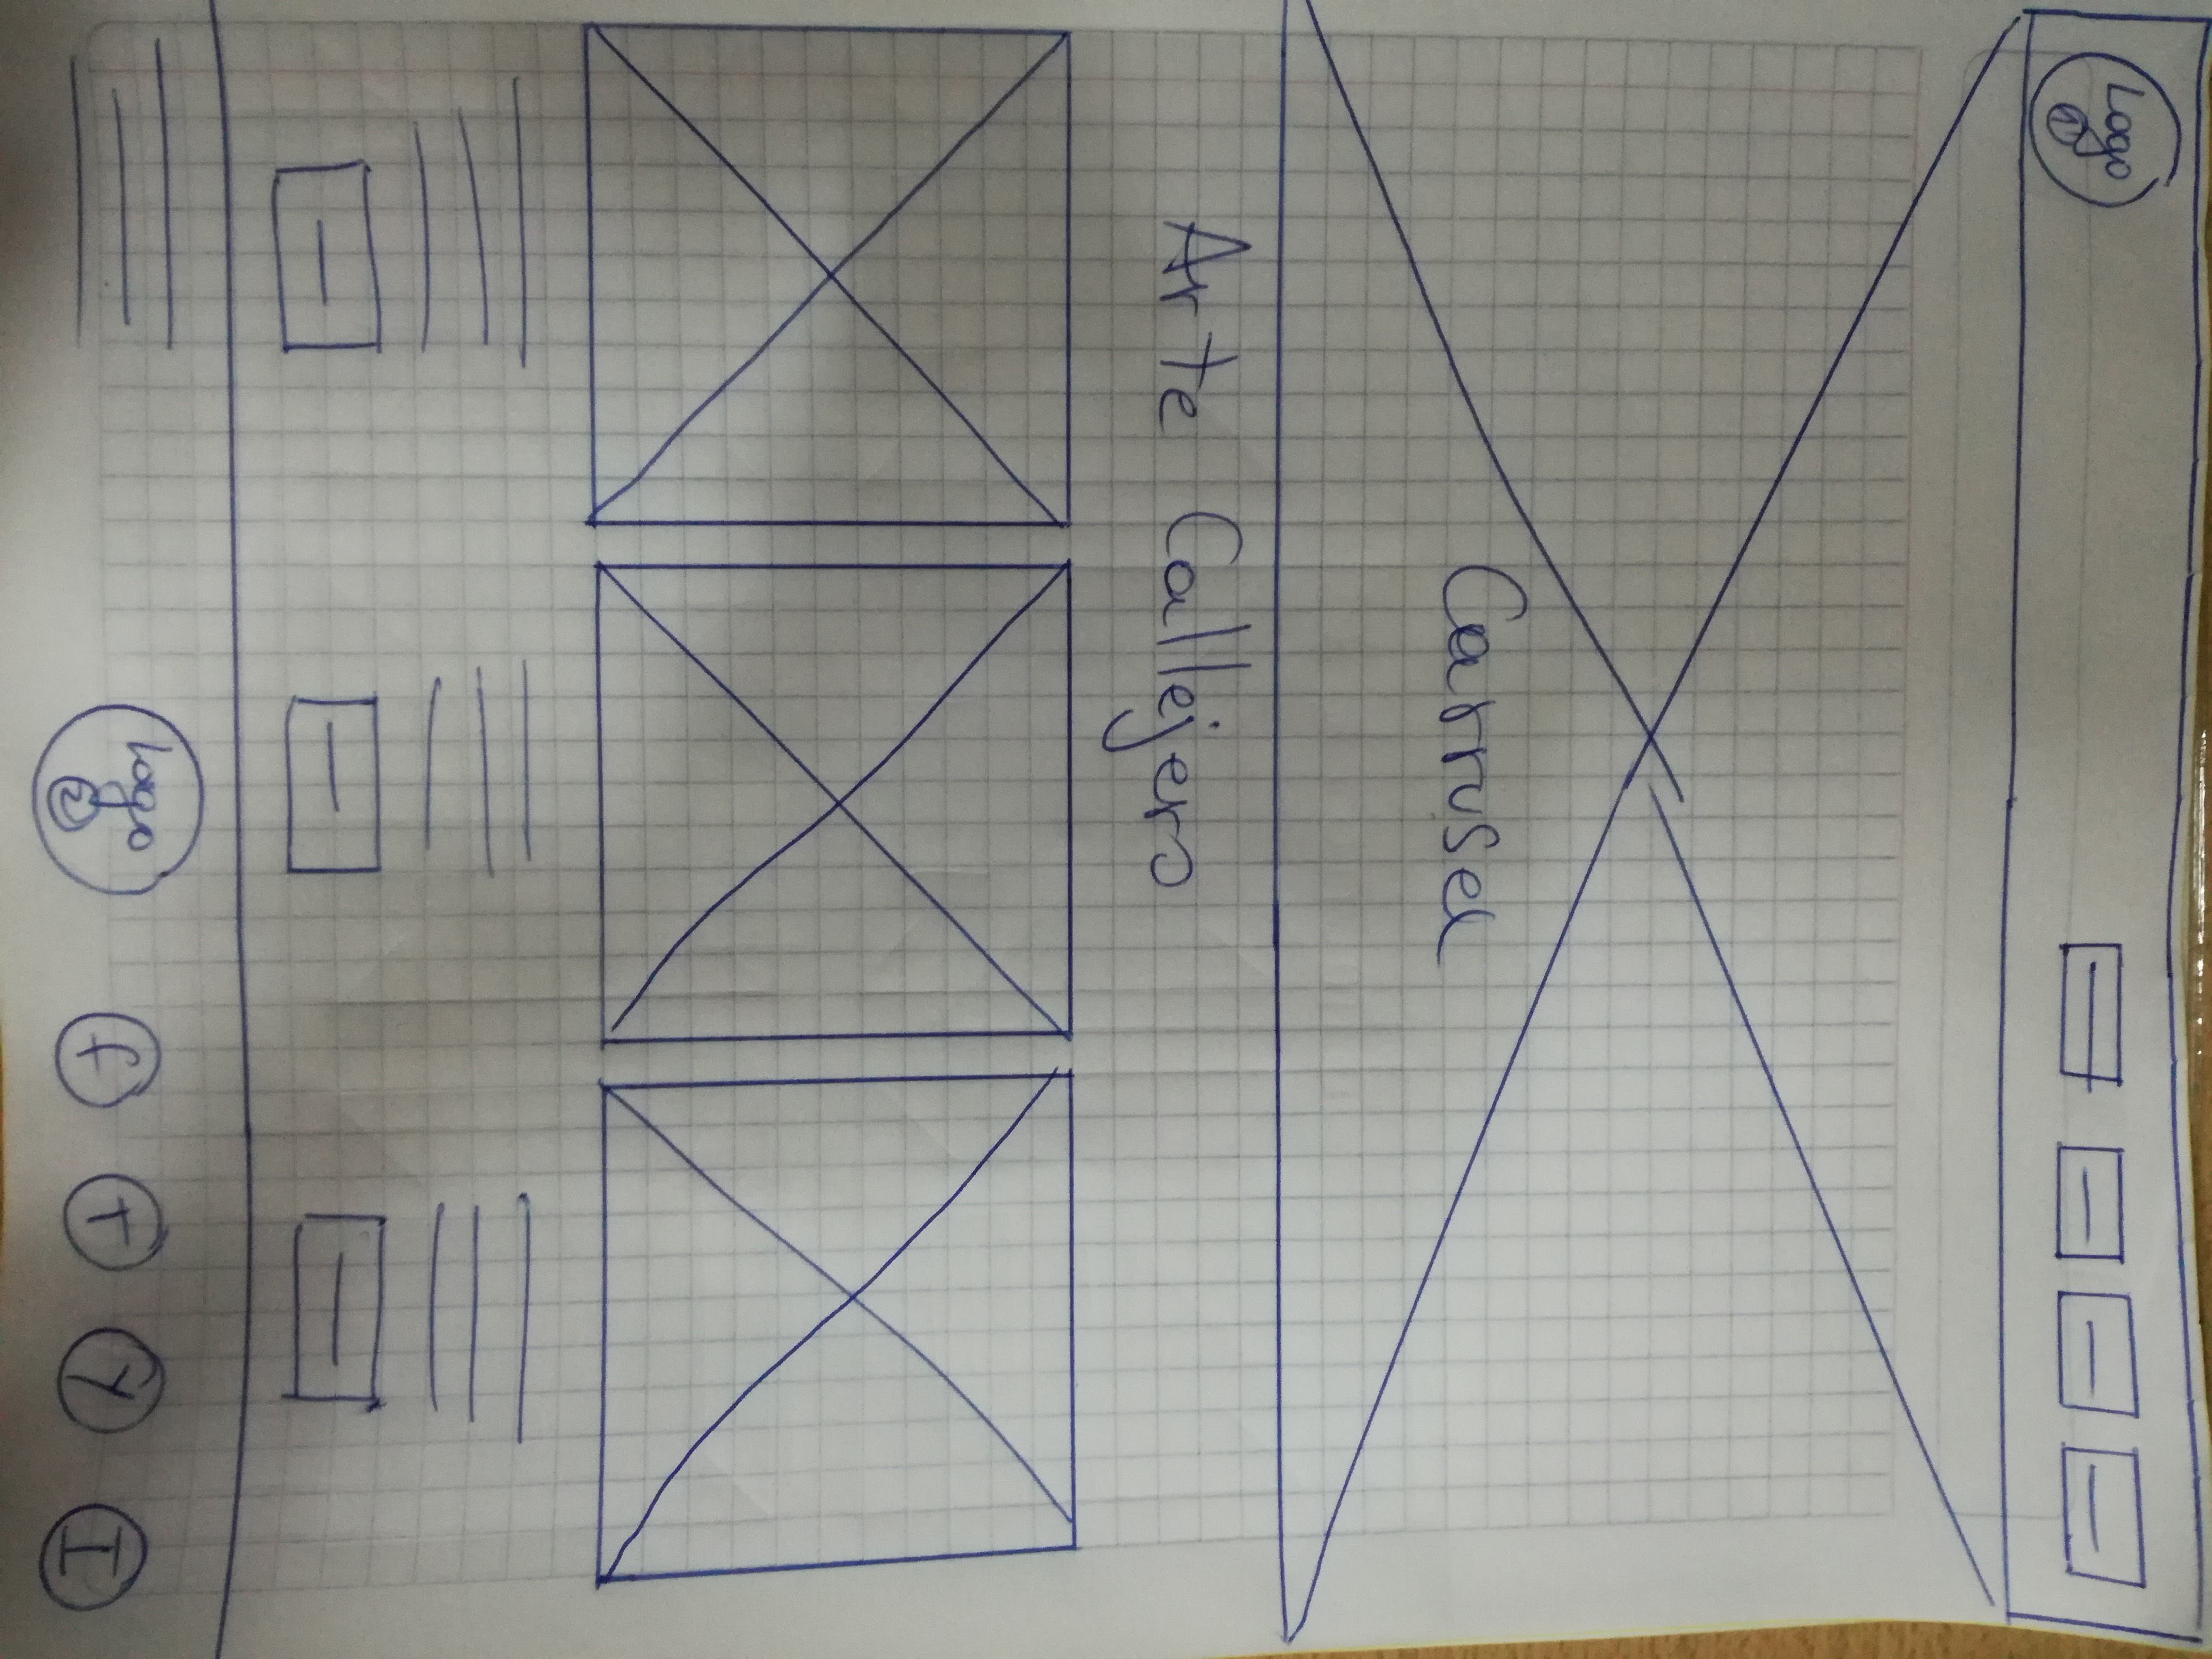 Logo
1
Carrusel
Arte Callejero
Logo
2
f T Y I